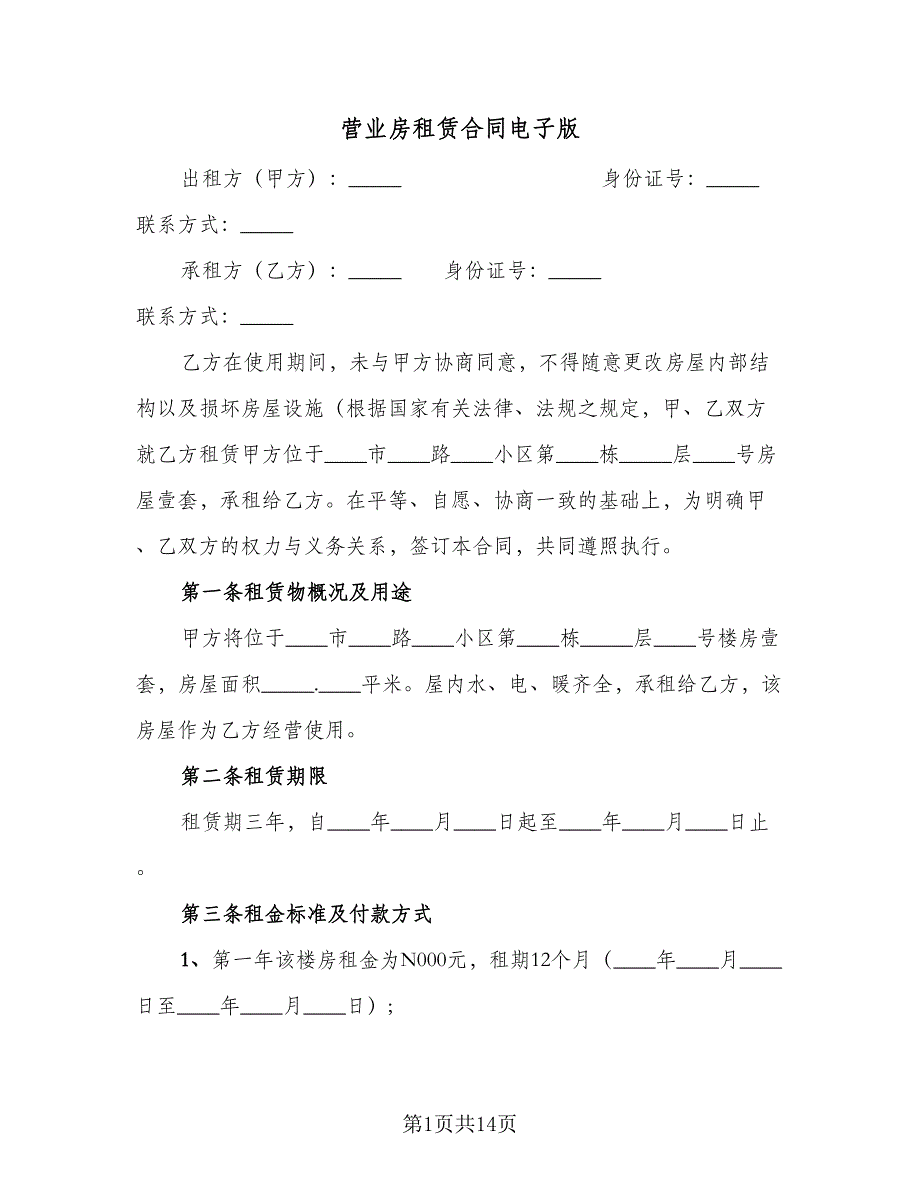 营业房租赁合同电子版
出租方（甲方）：_____ 身份证号：_____
联系方式：_____
承租方（乙方）：_____ 身份证号：_____
联系方式：_____
乙方在使用期间，未与甲方协商同意，不得随意更改房屋内部结
构以及损坏房屋设施（根据国家有关法律、法规之规定，甲、乙双方
就乙方租赁甲方位于____市____路____小区第____栋_____层____号房
屋壹套，承租给乙方。在平等、自愿、协商一致的基础上，为明确甲
、乙双方的权力与义务关系，签订本合同，共同遵照执行。
第一条租赁物概况及用途
甲方将位于____市____路____小区第____栋_____层____号楼房壹
套，房屋面积_____.____平米。屋内水、电、暖齐全，承租给乙方，该
房屋作为乙方经营使用。
第二条租赁期限
租赁期三年，自____年____月____日起至____年____月____日止
。
第三条租金标准及付款方式
1、第一年该楼房租金为N000元，租期12个月（____年____月____
日至____年____月____日）；
第1页共14页